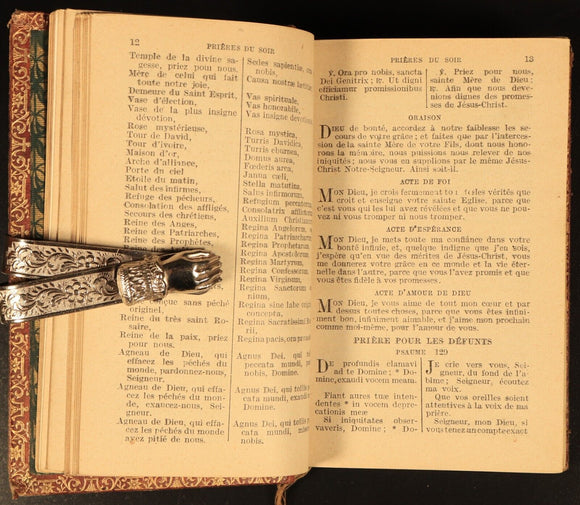 12
PRIÈRES DU SOIR
Temple de la divine sa-
gesse, priez pour nous.
Mère de celui qui fait
toute notre joie,
Demeure du Saint Esprit,
Vase d'élection,
Vase de la plus insigne
dévotion,
Rose mystérieuse,
Tour de David,
Tour d'ivoire,
Maison d'or,
Arche d'alliance,
Porte du ciel
Etoile du matin,
Salut des infirmes,
Refuge des pécheurs,
Consolation des affligés,
Secours des chrétiens,
Reine des Anges,
Reine des Patriarches,
Reine des Prophètes,
conçue sans péché
originel,
Reine du très saint Ro-
saire,
Reine de la paix, priez
pour nous.
Agneau de Dieu, qui
effacez les péchés du
monde, pardonnez-nous,
Seigneur.
Agneau de Dieu, qui effa-
cez les péchés du mon-
de, exaucez-nous, Sei-
gneur.
Agneau de Dieu, qui effa-
cez les péchés du monde
ayez pitié de nous.
Sedes sapientiæ, ora pro
nobis,
Causa nostræ lætitiæ
Vas spirituale,
Vas honorabile,
Vas insigne devotionis
Rosa mystica,
Turris Davidica,
Turris eburnea,
Domus aurea,
Fœderis arca,
Janna cæli,
Stella matutina,
Salus infirmorum,
Refugium peccatorum
Consolatrix afflictorum
Auxilium christianorum
Regina Angelorum,
Regina Patriarcharum
Regina Prophetarum
Regina Apostolorum
Regina Martyrum,
Regina Confessorum
Regina Virginum,
Regina Sanctorum
nium,
Regina sine labe originali
concepta.
Regina Sacratissimi
rii,
Regina pacis, ora pro nobis
Agnus Dei, qui
peccata mundi,
nobis, Domine.
Agnus Dei, qui tollis
cata mundi, exaudi
Domine.
Agnus Dei, qui tollis
cata mundi, miserere
nobis.
PRIÈRES DU SOIR
13
℣. Ora pro nobis, sancta
Dei Genitrix; ℟. Ut digni
efficiamur promissionibus
Christi.
℣. Priez pour nous,
sainte Mère de Dieu;
℟. Afin que nous deve-
nions dignes des promes-
ses de Jésus-Christ.
ORAISON
DIEU de bonté, accordez à notre faiblesse les se-
cours de votre grâce; et faites que par l'interces-
sion de la sainte Mère de votre Fils, dont nous hono-
rons la mémoire, nous puissions nous relever de nos
iniquités; nous vous en supplions par le même Jésus-
Christ Notre-Seigneur. Ainsi soit-il.
ACTE DE FOI
MON Dieu, je crois fermement toutes les vérités que
croit et enseigne votre sainte Eglise, parce que
c'est vous qui les lui avez révélées et que vous ne pou-
vez ni vous tromper ni nous tromper.
ACTE D'ESPÉRANCE
MON Dieu, je mets toute ma confiance dans votre
bonté infinie, et, quelque indigne que j'en sois,
j'espère qu'en vue des mérites de Jésus-Christ, vous
me donnerez votre grâce en ce monde et la vie éter-
nelle dans l'autre, parce que vous l'avez promis et que
vous êtes fidèle à vos promesses.
ACTE D'AMOUR DE DIEU
MON Dieu, je vous aime de tout mon cœur et par
dessus toutes choses, parce que vous êtes infini-
ment bon, infiniment aimable, et j'aime mon prochain
comme moi-même, pour l'amour de vous.
PRIÈRE POUR LES DÉFUNTS
PSAUME 129
DE profundis clamavi
ad te Domine; * Do-
mine, exaudi vocem meam.
Fiant aures tuæ inten-
dentes * in vocem depreca-
tionis meæ
Si iniquitates obser-
vaveris, Domine; * Do-
JE crie vers vous, Sei-
gneur, du fond de l'a-
bîme; Seigneur, écoutez
ma voix.
Que vos oreilles soient
attentives à la voix de ma
prière.
Seigneur, mon Dieu, si
vous tenez un compte exact